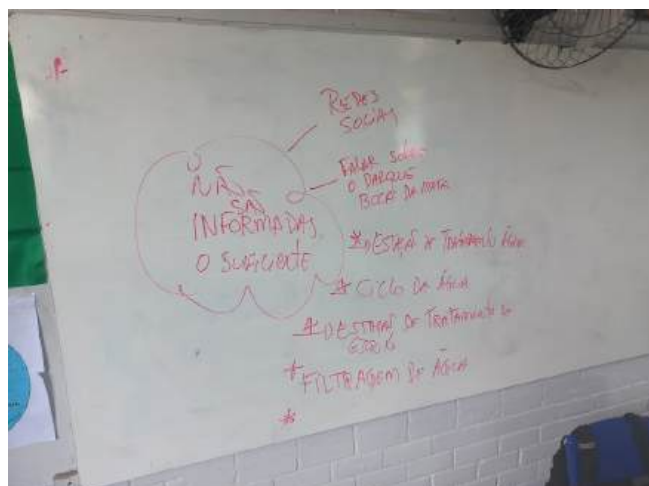 NÃO
SÃO
INFORMADAS
O SUFICIENTE
REDES
SOCIAIS
FALAR SOBRE
O PARQUE
BOCA DA MATA
* ESTAÇÃO DE TRATAMENTO ÁGUA
* CICLO DA ÁGUA
* ESTAÇÃO DE TRATAMENTO DE
* FILTRAGEM DA ÁGUA
*